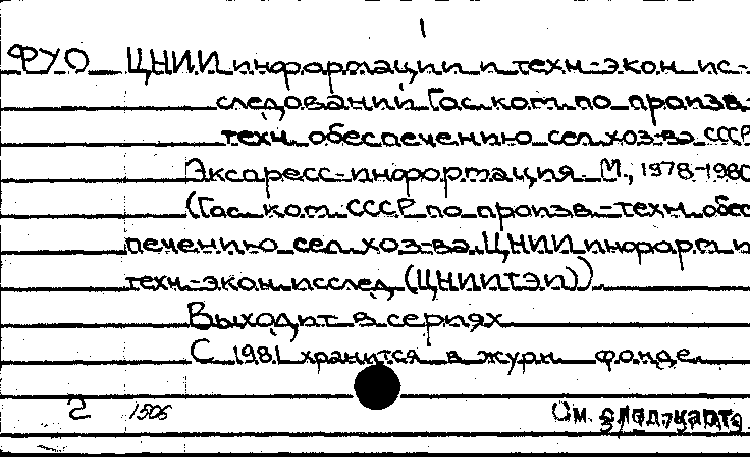 1
ФУО ЦНИИ информации и техн-экон ис-
следований Гос. ком. по произв.-
техн. обеспечению сел. хоз-ва СССР
Экспресс-информация. М., 1978-1980
(Гос. ком. СССР по произв.-техн. обес
печению сел. хоз-ва. ЦНИИ информ и
техн.-экон. исслед. (ЦНИИТЭИ))
Выходит в сериях
С 1981 хранится в журн. фонде.
2 1506 См. след. карто